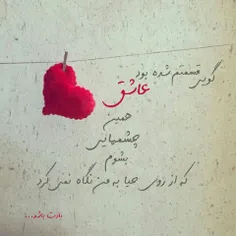 گویی قسمتم شده بود
عاشق
همین
چشمهایی
بشوم
که از روی حیا به من نگاه نمی کرد
یادت باشد...